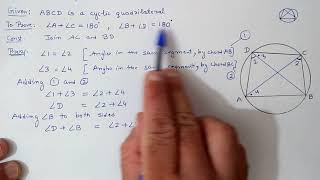 Given: ABCD is a cyclic quadrilateral
To Prove: ∠A+∠C = 180°, ∠B+∠D = 180°
Const: Join AC and BD
∠1 = ∠2 [Angles in the same segment, by chord AB]
∠3 = ∠4 [Angles in the same segment, by chord BC]
Adding ① and ②
∠1+∠3 = ∠2+∠4
∠D = ∠2+∠4
Adding ∠B to both sides
∠D+∠B = ∠2+∠
①
②
D
C
A
B